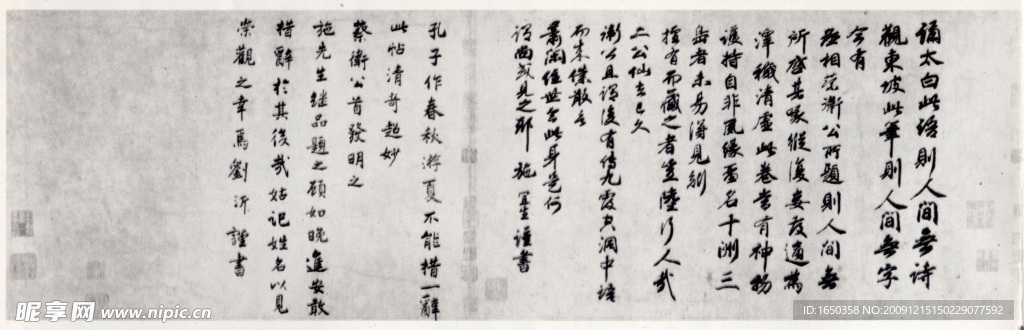 誦太白此語則人間無詩
觀東坡此筆則人間無字
今有
丞相蔡衛公所題則人間無
所啓其喙縱復妄度適為
滓穢清虛此卷當有神物
護持自非夙緣舊名十洲三
島者未易得見矧
擅有而藏之者豈陸行人哉
二公仙去已久
衛公且謂復有傳九霞空洞中語
而來僕散
蕭閑住世此身是何
謂尚或見之耶 施宜生謹書
孔子作春秋游夏不能措一辭
此帖清奇超妙
蔡衛公首發明之
施先生繼品題之顧如晚進安敢
措辭於其後哉姑記姓名以見
榮觀之幸焉劉沂謹書
昵享网 www.nipic.cn
ID:1650358 NO:20091215150229077592